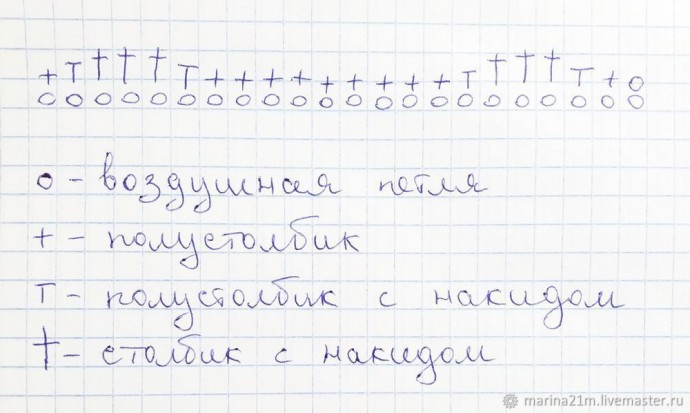 + T † † † T + + + + + + + + + T † † † T + o
o o o o o o o o o o o o o o o o o o o o o o
o - воздушная петля
+ - полустолбик
T - полустолбик с накидом
† - столбик с накидом
marina21m.livemaster.ru